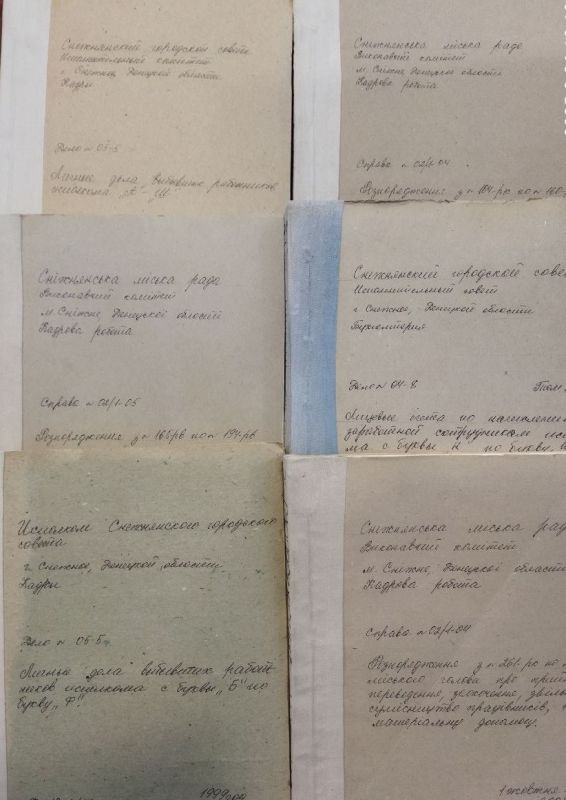 Снежнянский городской совет
Исполнительный комитет
г. Снежное, Донецкой области
Кадры
Дело № 05-5
Личные дела выбывших работников
исполкома "А" - "Ш"
Сніжнянська міська рада
Виконавчий комітет
м. Сніжне Донецкої області
Кадрова робота
Справа № 02/1-04
Розпорядження з №
Сніжнянська міська рада
Виконавчий комітет
м. Сніжне, Донецкої області
Кадрова робота
Справа № 02/1-05
Розпорядження з № 165рв по № 194-рв
Снежнянский городской сове
Исполнительный совет
г Снежное, Донецкой области
Бухгалтерия
Дело № 04-8 Том
Лицевые счета по
заработной сотрудникам исп
ма с буквы по букву
Исполком Снежнянского городского
совета
г. Снежное, Донецкой области
Кадры
Дело № 05-5
Личные дела выбывших работ
ников исполкома с буквы "Б" по
букву "Ф"
1999
Сніжнянська міська рад
Виконавчий комітет
м. Сніжне, Донецкої област
Кадрова робота
Справа № 02/1-04
Розпорядження з № 261-рк по
міського голови про
переведення, заохочення, звіль
сумісництво працівників,
матеріальну допомогу.
1 жовтня